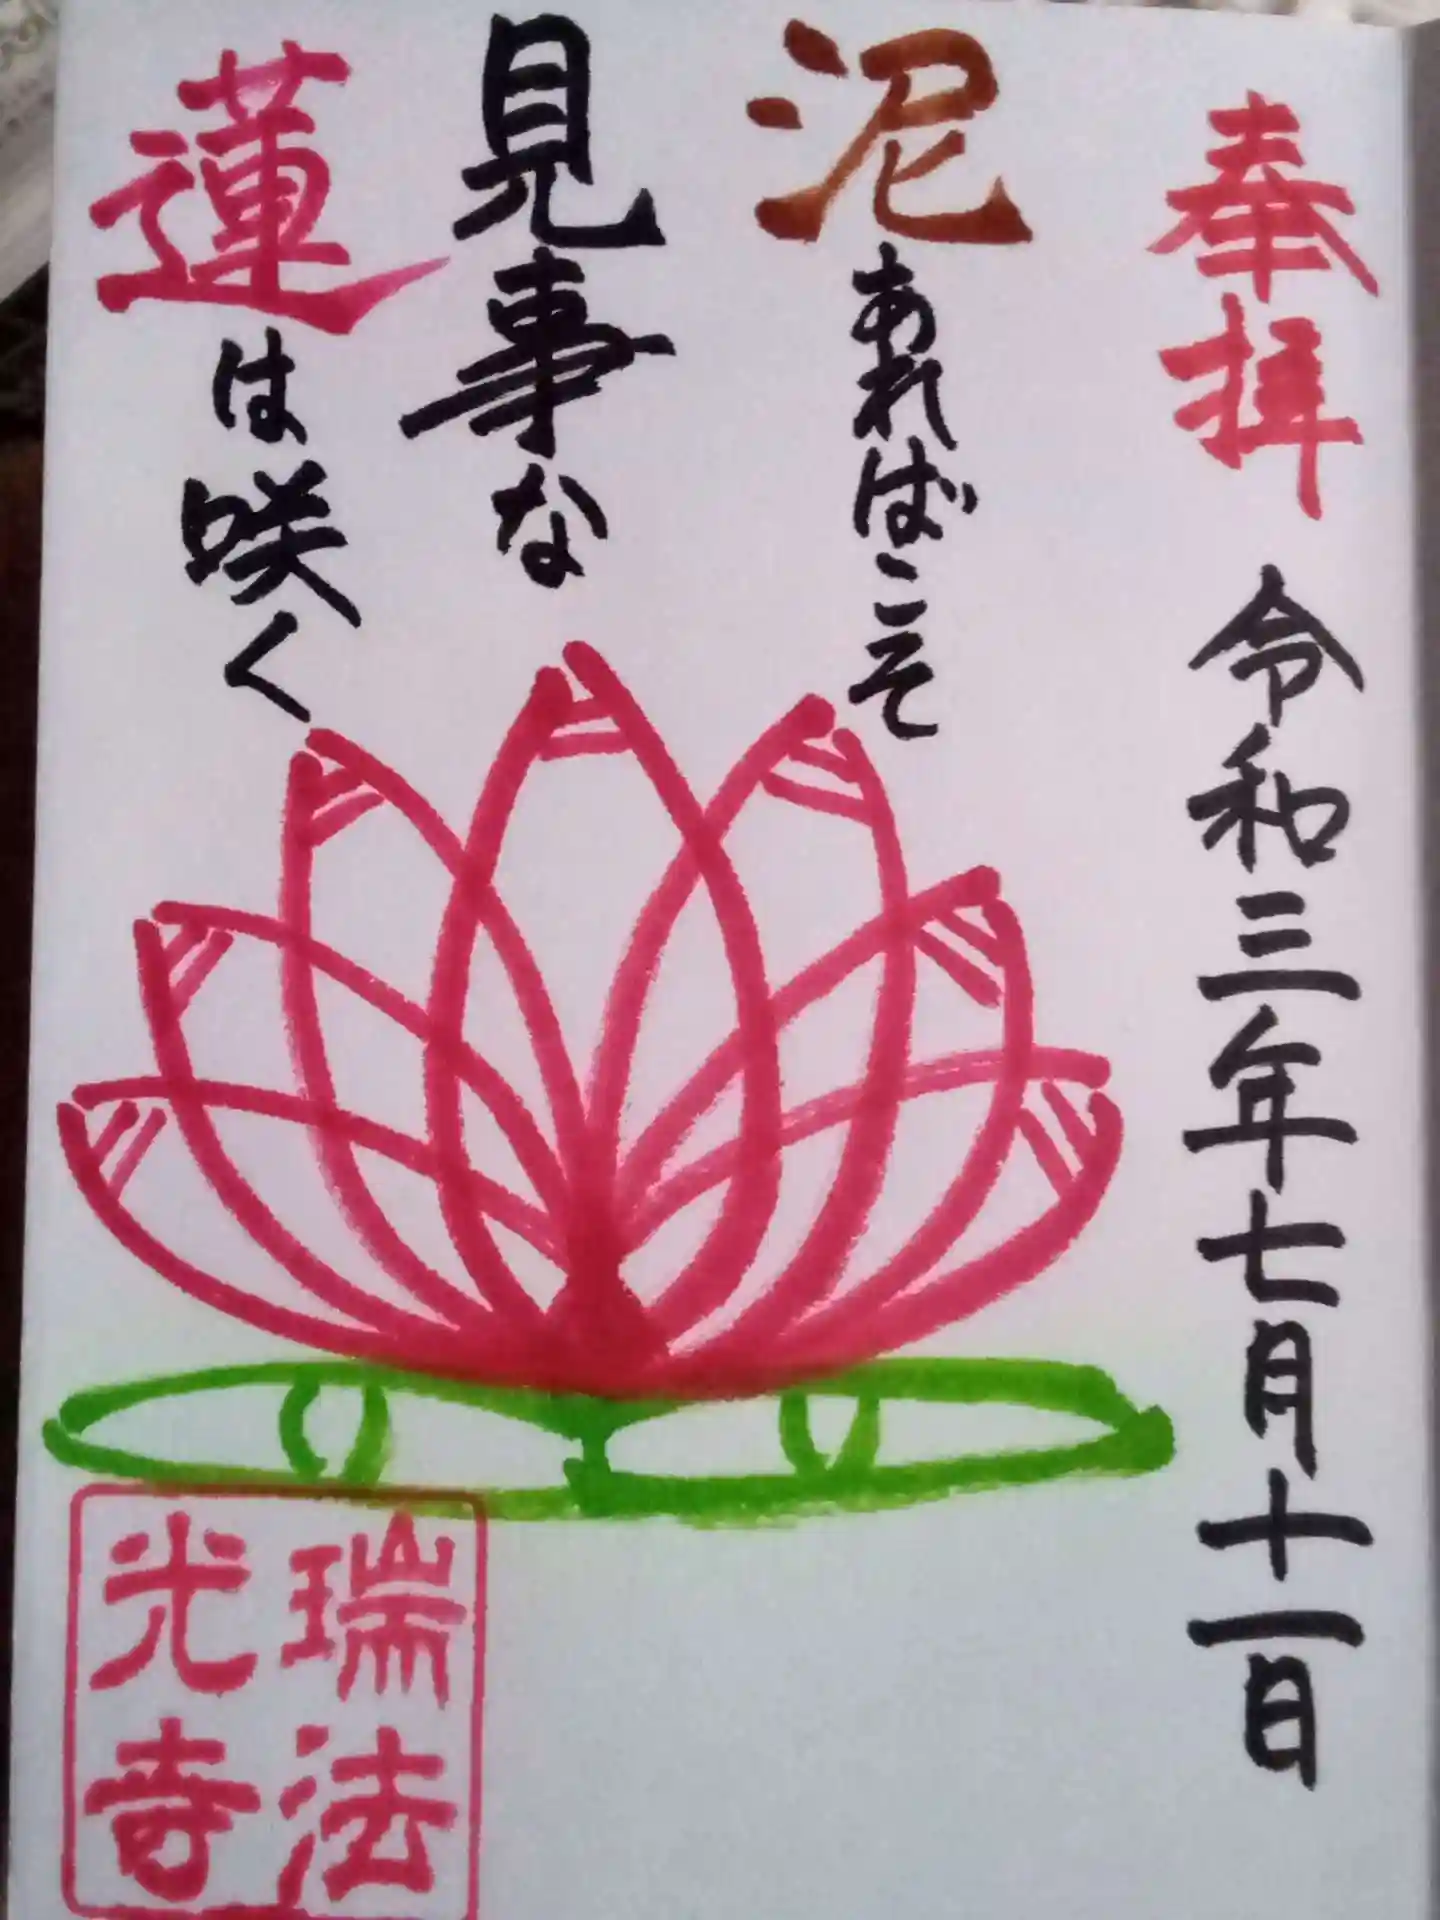 奉拝 令和三年七月十一日
泥あればこそ
見事な
蓮は咲く
瑞法
光寺